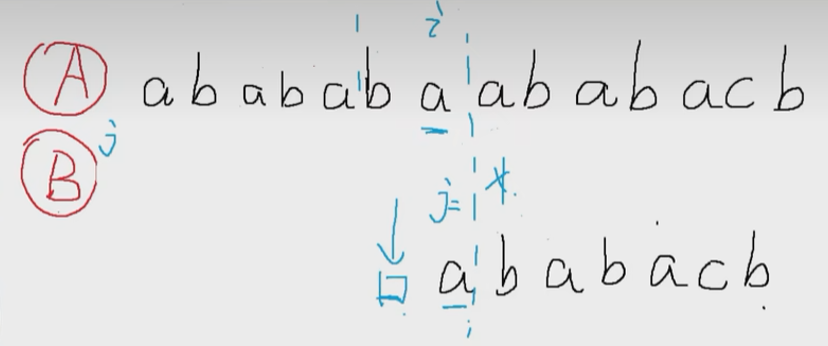 i
A a b a b a b a a b a b a c b
j
B
j=
a b a b a c b